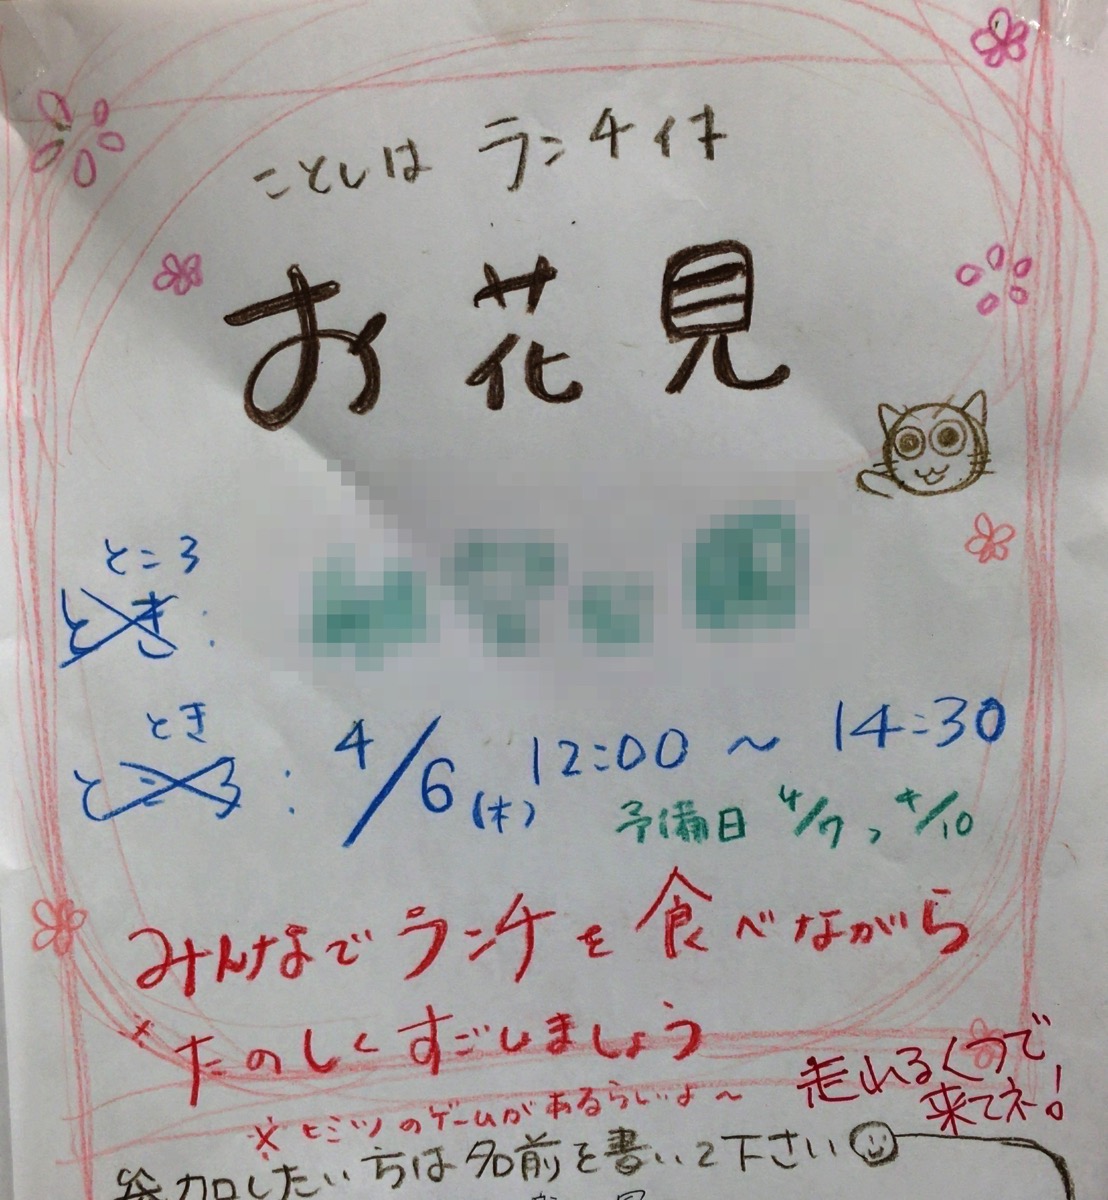 ことしは ランチ付
お花見
ところ
とき:
とき
ところ: 4/6(木) 12:00 ~ 14:30
予備日 4/7, 4/10
みんなでランチを食べながら
たのしくすごしましょう
走れるくつで
来てネー!
※ヒミツのゲームがあるらしいよ~
参加したい方は名前を書いて下さい